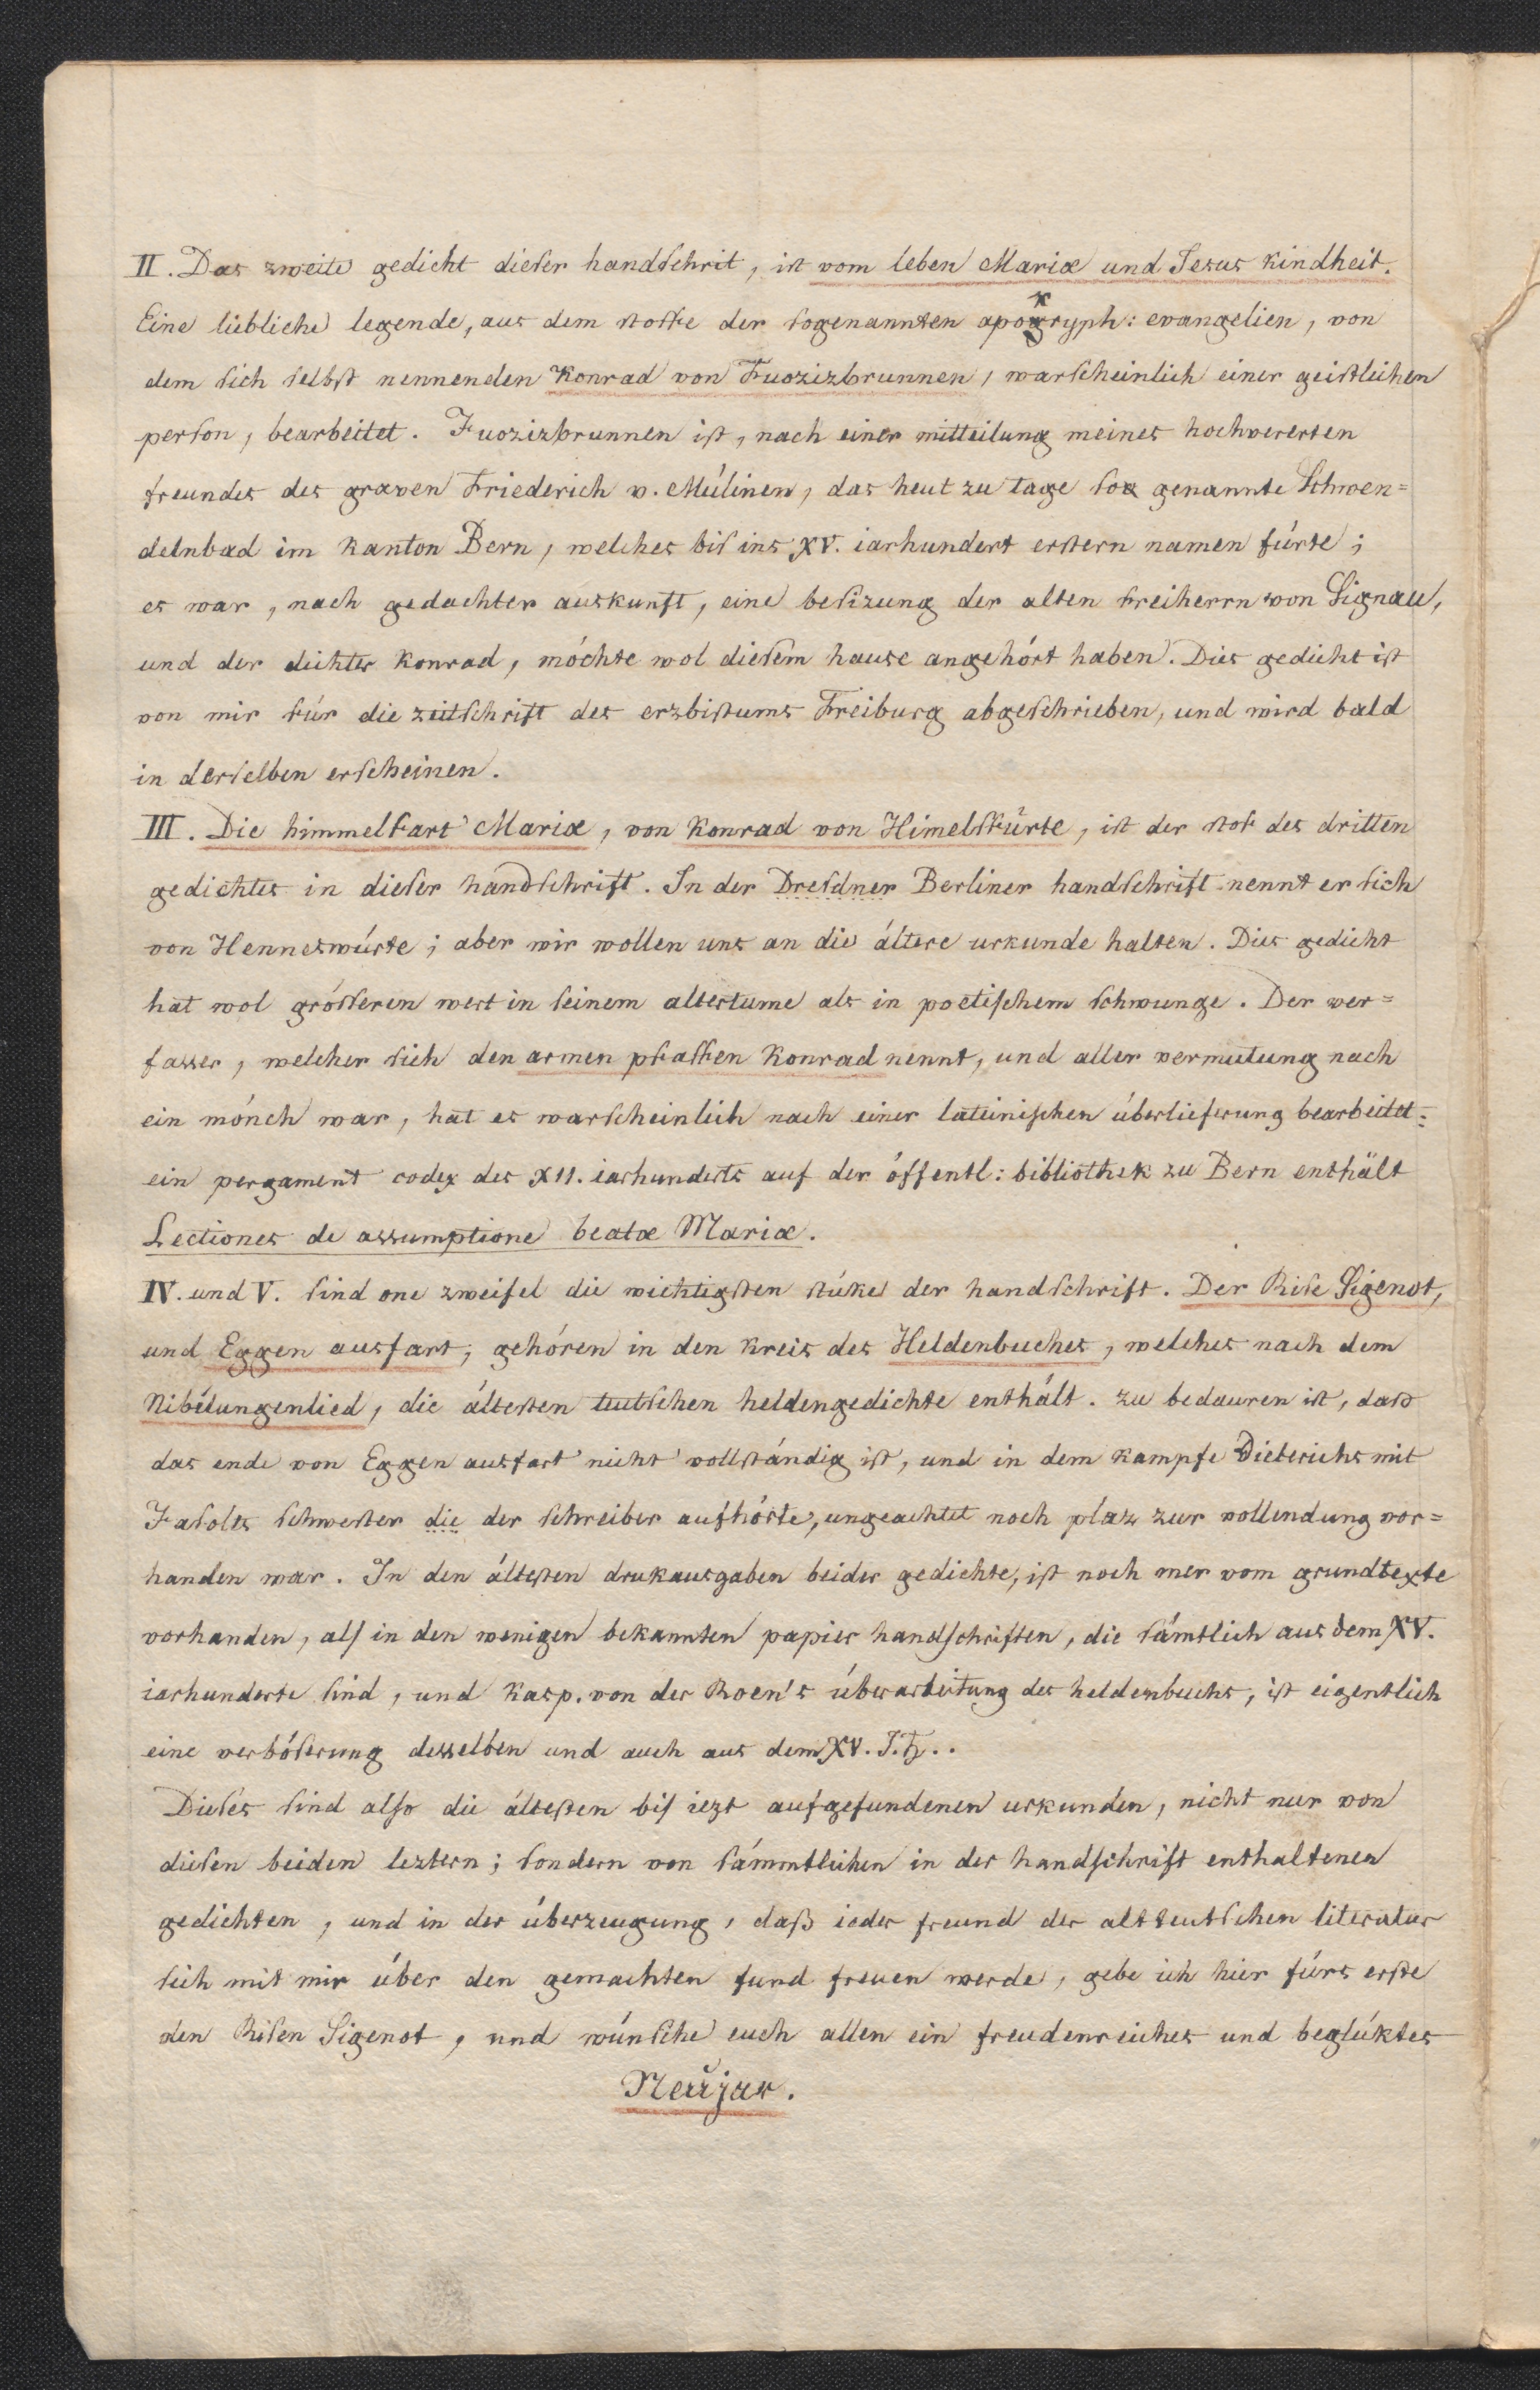 II. Das zweite gedicht dieser handschrit, ist vom leben Mariæ und Jesus kindheit.
Eine liebliche legende, aus dem stoffe der sogenannten apogryph: evangelien, von
k
dem sich selbst nennenden Konrad von Fuozizbrunnen, warscheinlich einer geistlichen
person, bearbeitet. Fuozizbrunnen ist, nach einer mitteilung meines hochwererten
freundes des graven Friederich v. Mülinen, das heut zu tage so genannte Schwen=
delnbad im Kanton Bern, welches bis ins XV. iarhundert erstern namen fürte;
es war, nach gedachter auskunft, eine besizung der alten freiherrn von Signau,
und der dichter Konrad, möchte wol diesem hause angehört haben. Dies gedicht ist
von mir für die zeitschrift des erzbistums Freiburg abgeschrieben, und wird bald
in derselben erscheinen.
III. Die himmelfart Mariæ, von Konrad von Himelsfürte, ist der stof des dritten
gedichtes in dieser handschrift. In der Dresdner Berliner handschrift nennt er sich
von Henneswürte; aber wir wollen uns an die ältere urkunde halten. Dies gedicht
hat wol grösseren wert in seinem altertume als in poetischem schwunge. Der ver=
fasser, welcher sich den armen pfaffen Konrad nennt, und aller vermutung nach
ein mönch war, hat es warscheinlich nach einer lateinischen überlieferung bearbeitet:
ein pergament codex des XII. iarhunderts auf der öffentl: bibliothek zu Bern enthält
Lectiones de assumptione beatæ Mariæ.
IV. und V. sind one zweifel die wichtigsten stüke der handschrift. Der Rise Sigenot,
und Eggen ausfart, gehören in den kreis des Heldenbuches, welches nach dem
Nibelungenlied, die ältesten teutschen heldengedichte enthält. zu bedauren ist, daß
das ende von Eggen ausfart nicht vollständig ist, und in dem kampfe Dieterichs mit
Fasolts schwester die der schreiber aufhörte, ungeachtet noch plaz zur vollendung vor=
handen war. In den ältesten drukausgaben beider gedichte, ist noch mer vom grundtexte
vorhanden, als in den wenigen bekannten papier handschriften, die sämtlich aus dem XV.
iarhunderte sind, und Kasp. von der Roen's überarbeitung des heldenbuchs, ist eigentlich
eine verböserung desselben und auch aus dem XV. J.H..
Dieses sind also die ältesten bis iezt aufgefundenen urkunden, nicht nur von
diesen beiden leztern; sondern von sämmtlichen in der handschrift enthaltenen
gedichten, und in der überzeugung, daß ieder freund der altteutschen literatur
sich mit mir über den gemachten fund freuen werde, gebe ich hier fürs erste
den Risen Sigenot, und wünsche euch allen ein freudenreiches und beglüktes
Neüjar.